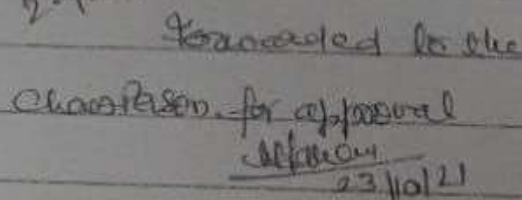 2.
Forwarded to the
Chairperson for approval
23/10/21